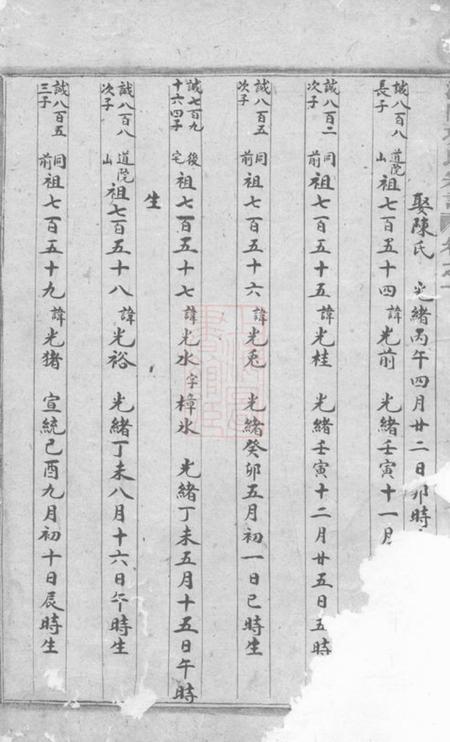 娶陳氏 光緒丙午四月廿二日卯時
誠八百八長子 道院山 祖七百五十四 諱光前 光緒壬寅十一月
誠八百二次子 同前 祖七百五十五 諱光桂 光緒壬寅十二月廿五日丑時
誠八百五次子 同前 祖七百五十六 諱光兎 光緒癸卯五月初一日巳時生
誠七百九十六四子 後宅 祖七百五十七 諱光水 字樟水 光緒丁未五月十五日午時
生
誠八百八次子 道院山 祖七百五十八 諱光裕 光緒丁未八月十六日午時生
誠八百五三子 同前 祖七百五十九 諱光猪 宣統己酉九月初十日辰時生